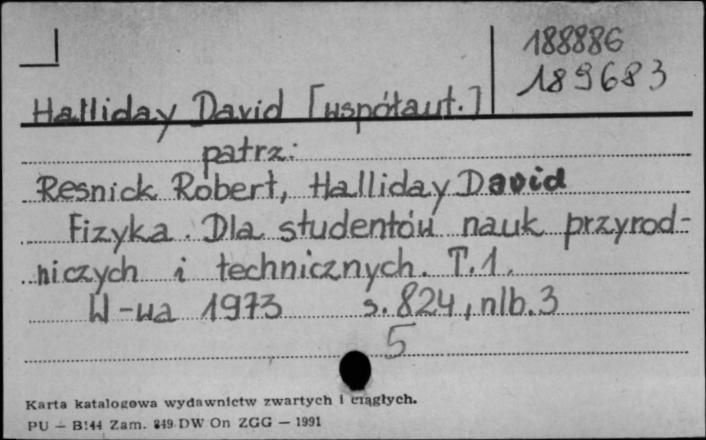 188886
189683
Halliday David [współaut.]
patrz:
Resnick Robert, Halliday David
Fizyka. Dla studentów nauk przyrod-
niczych i technicznych. T.1.
W-wa 1973 s. 824, nlb. 3
5
Karta katalogowa wydawnictw zwartych i ciągłych.
PU — B144 Zam. 849 DW On ZGG — 1991